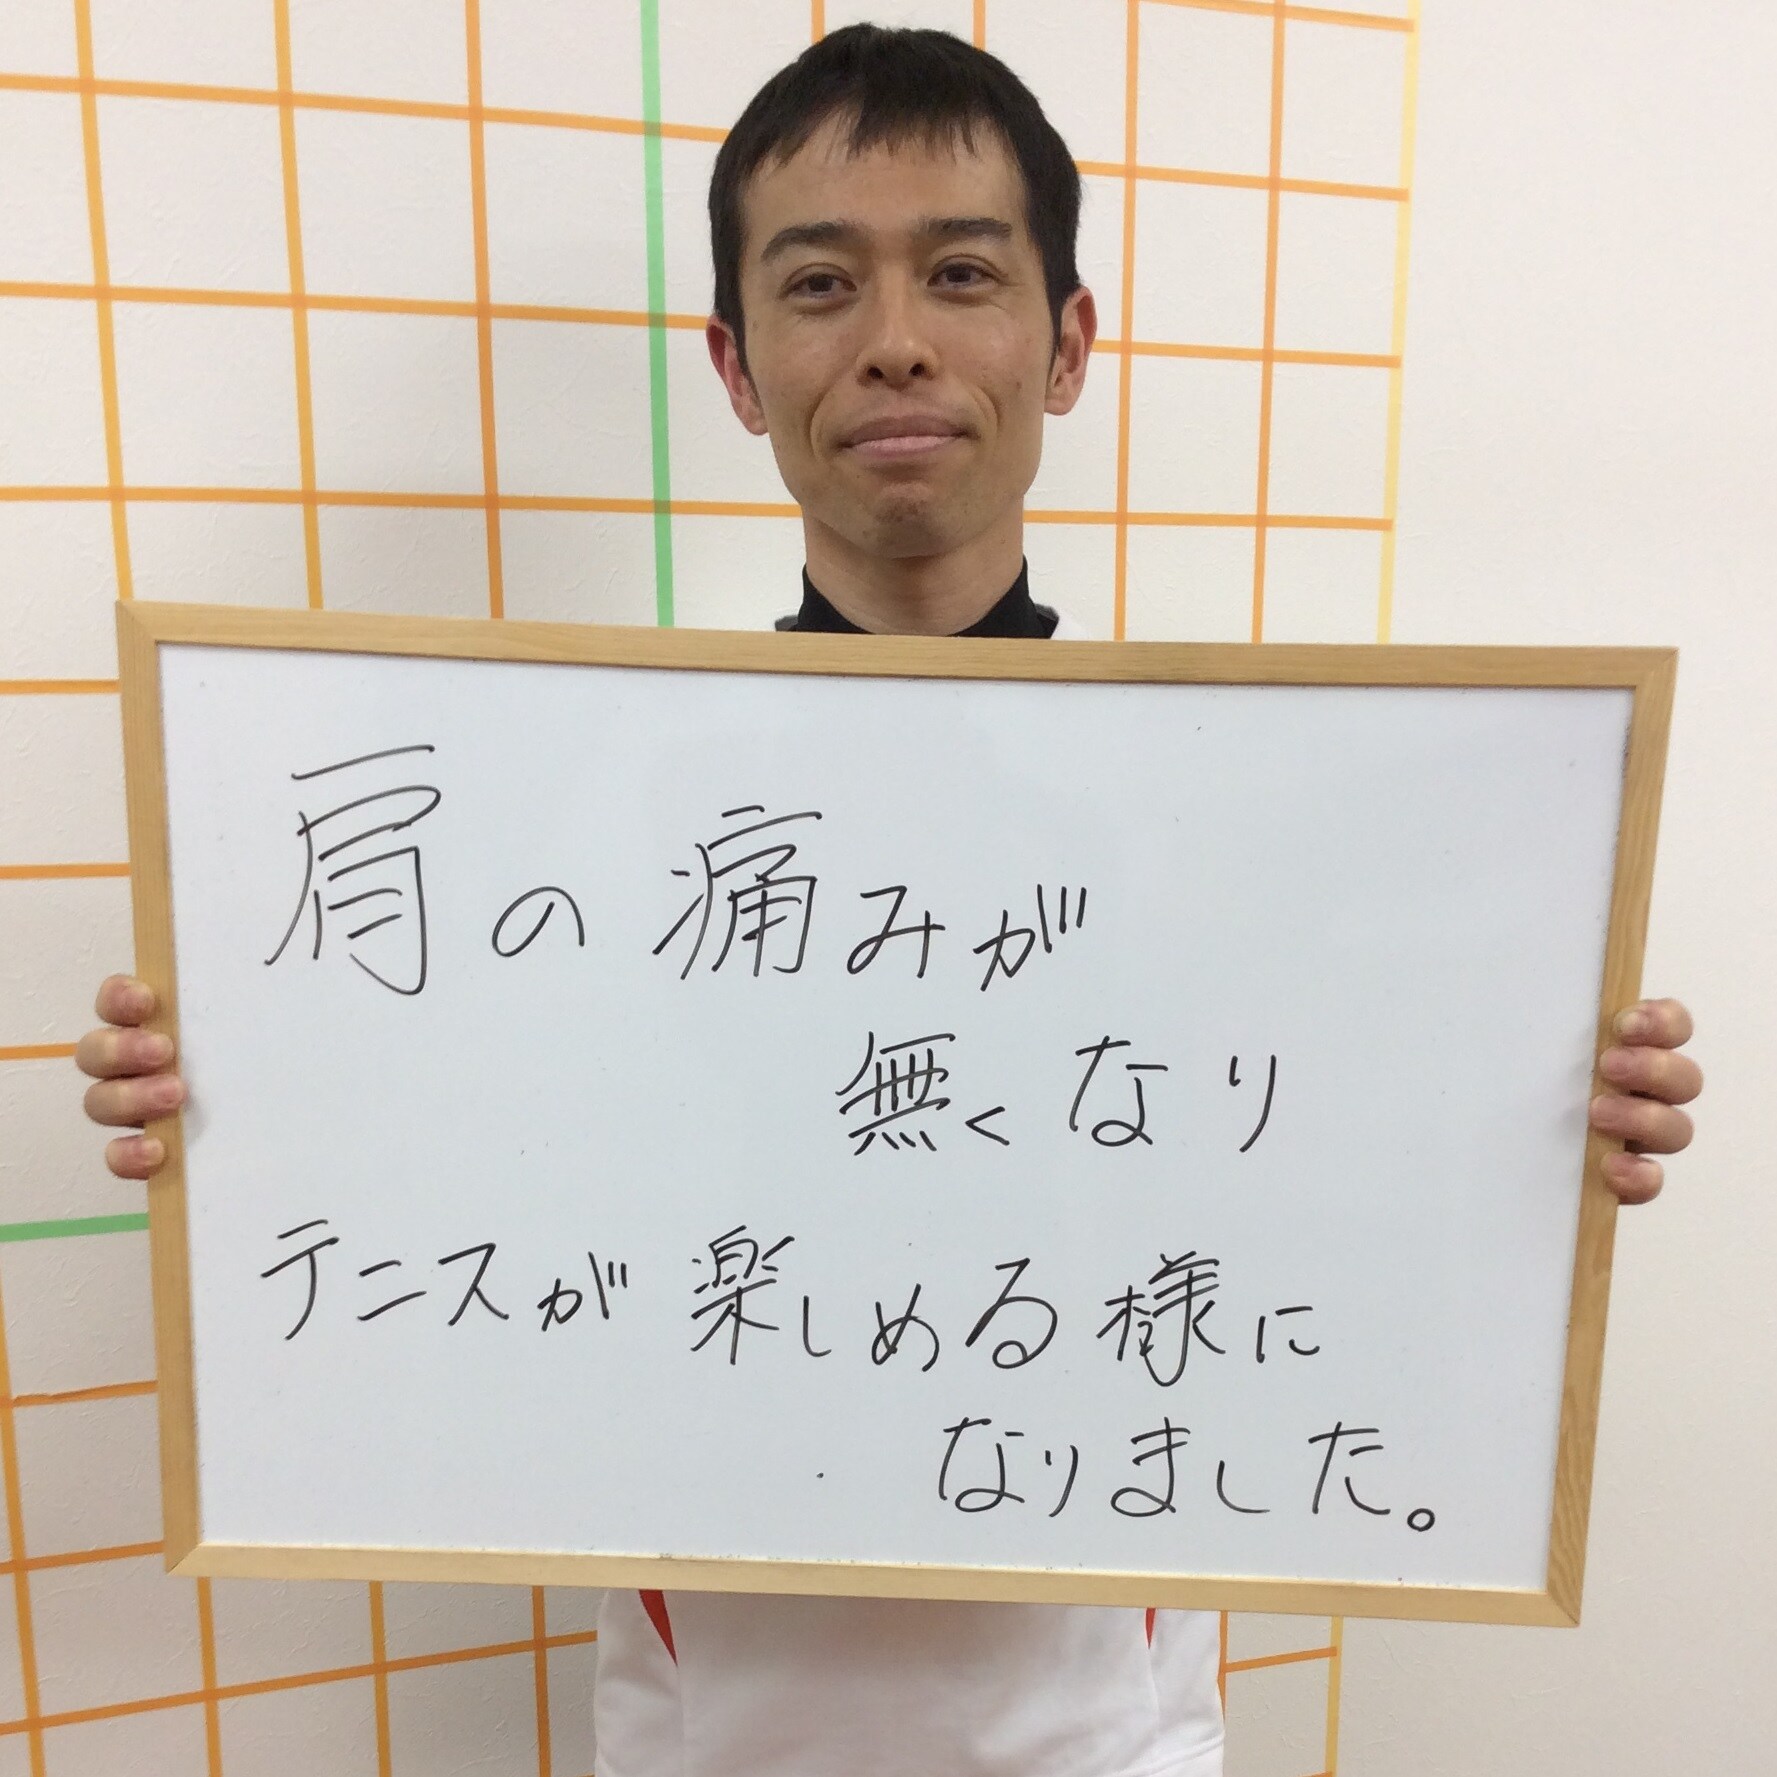 肩の痛みが
無くなり
テニスが楽しめる様に
なりました。